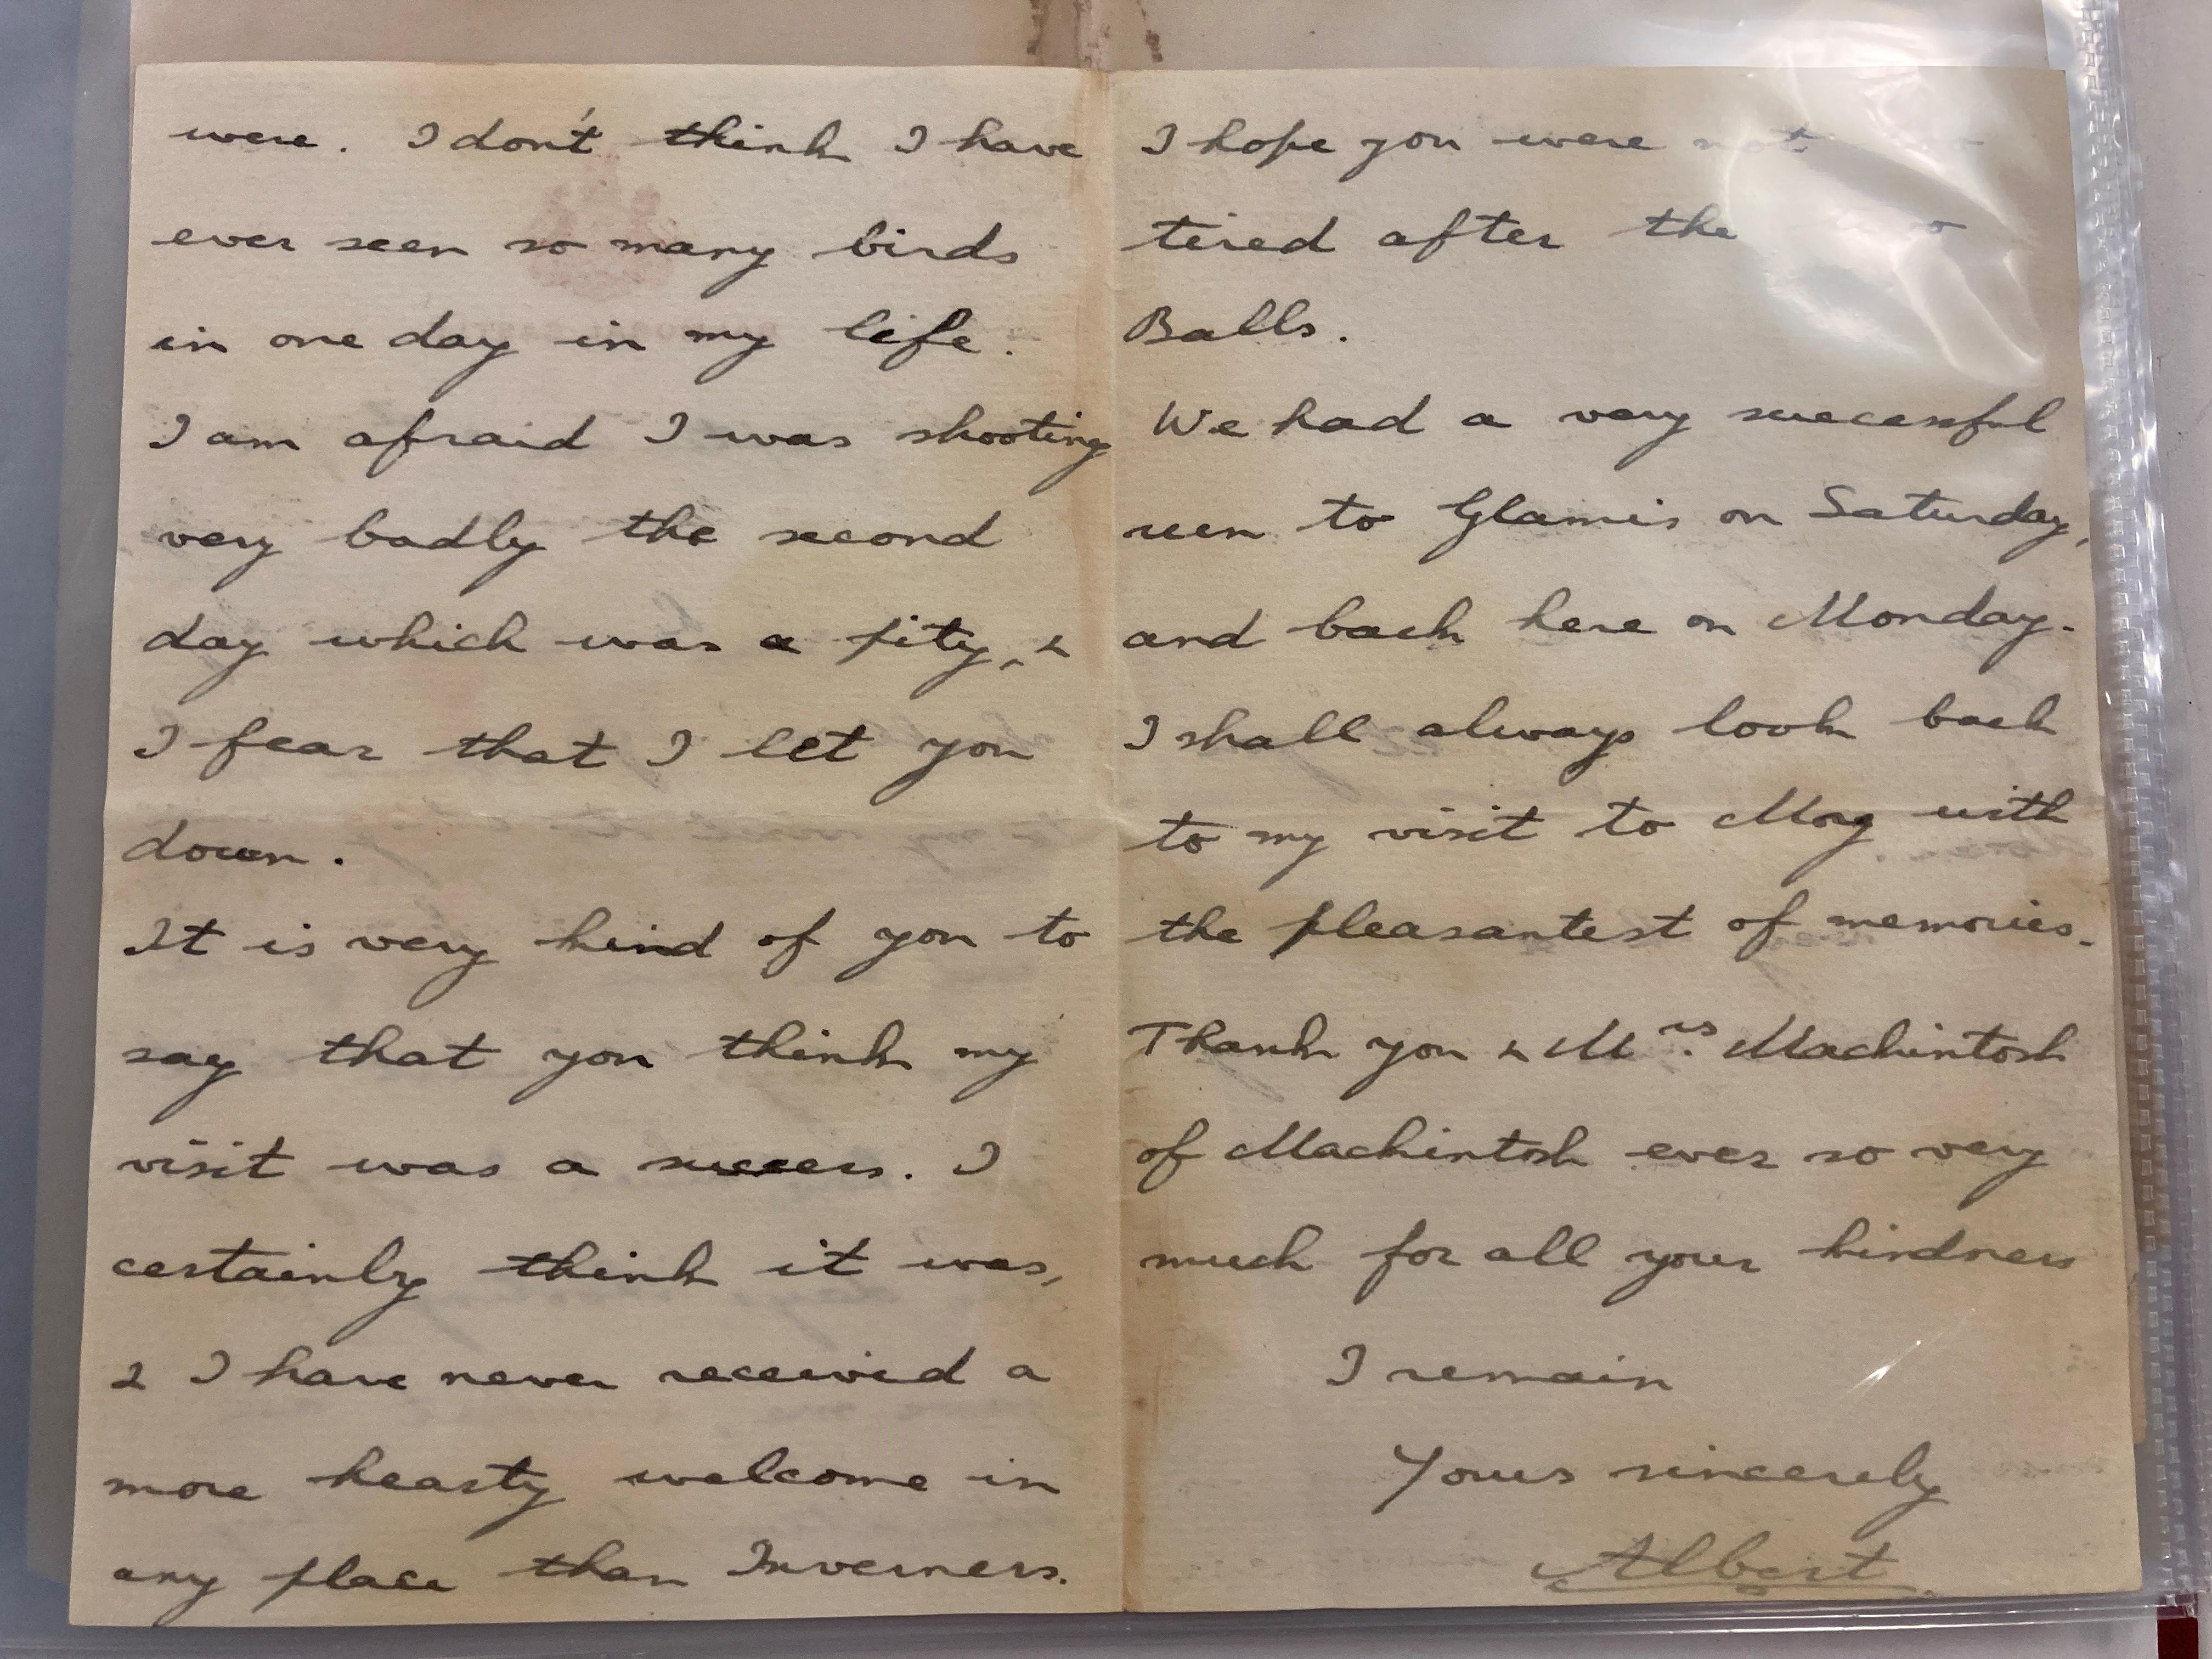 were. I don't think I have
ever seen so many birds
in one day in my life.
I am afraid I was shooting
very badly the second
day which was a pity, &
I fear that I let you
down.
It is very kind of you to
say that you think my
visit was a success. I
certainly think it was,
& I have never received a
more hearty welcome in
any place than Inverness.
I hope you were not
tired after the
Balls.
We had a very successful
run to Glamis on Saturday,
and back here on Monday.
I shall always look back
to my visit to Moy with
the pleasantest of memories.
Thank you & Mrs. Mackintosh
of Mackintosh ever so very
much for all your kindness
I remain
Yours sincerely
Albert